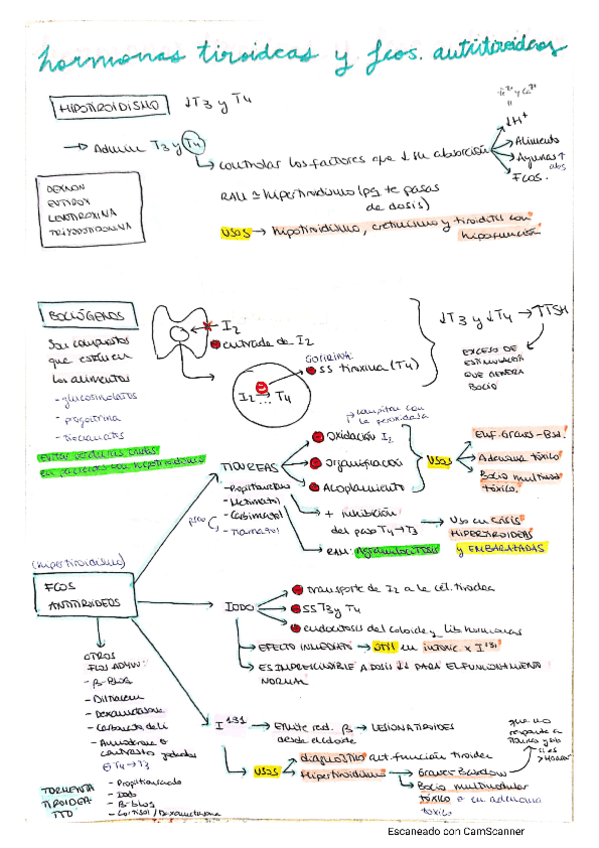 hormonas tiroideas y fcos. antitiroideos
HIPOTIROIDISMO ↓T3 y T4
Fe2+ y Ca2+
↓H+
→ Admin T3 y T4
→ controlar los factores que ↓ su absorción
Alimento
Ayunas ↑ abs
Fcos.
RAM ≃ hipertiroidismo (pq te pasas
de dosis)
DEXNON
EUTIROX
LEVOTIROXINA
TRIYODOTIRONINA
USOS → hipotiroidismo, cretinismo y tiroiditis con
hipofunción
BOCIÓGENOS
Son compuestos
que están en
los alimentos
- glucosinolatos
- progoitrina
- tiocianatos
I2
entrada de I2
GOITRINA:
SS tiroxina (T4)
I2 ... T4
↓T3 y ↓T4 → ↑TSH
EXCESO DE
ESTIMULACIÓN
QUE GENERA
BOCIO
Evitar verduras crudas
en pacientes con hipotiroidismo
TIOUREAS
- Propiltiouracilo
- Metimazol
- Carbimazol
- Tiamazol
compiten con
la peroxidasa
Oxidación I2
Organificación
Acoplamiento
USOS
Enf. Graves-Bsd.
Adenoma tóxico
Bocio multinod
tóxico.
+ inhibición
del paso T4 → T3
→ Uso en CRISIS
HIPERTIROIDEAS
y EMBARAZADAS
RAM: Agranulocitosis
(hipertiroidismo)
FCOS
ANTITIROIDEOS
IODO
transporte de I2 a la cél. tiroidea
SS T3 y T4
endocitosis del coloide y lib hormonas
→ EFECTO INMEDIATO → útil en intoxic x I131
→ ES IMPRESCINDIBLE A DOSIS ↓↓ PARA EL FUNCIONAMIENTO
NORMAL
OTROS
FCOS ADYUV:
- β-Bloq
- Diltiazem
- Dexametasona
- Carbonato de Li
- Amiodarona o
contrastes yodados
⊖ T4 → T3
I131
→ Emite rad. β → LESIONA TIROIDES
desde el coloide
USOS
diagnóstico alt. función tiroidea
Hipertiroidismo
Graves Basedow
Bocio multinodular
tóxico o en adenoma
tóxico
que no
responde a
TORMENTA
TIROIDEA
TTO
- Propiltiouracilo
- Iodo
- B-bloq
- Cortisol / Dexametasona
Escaneado con CamScanner